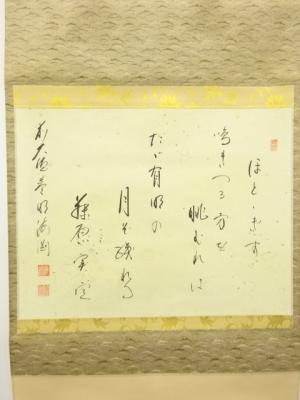 ほとゝきす
鳴きつる方を
眺むれは
たゝ有明の
月そ残れる
藤原実定